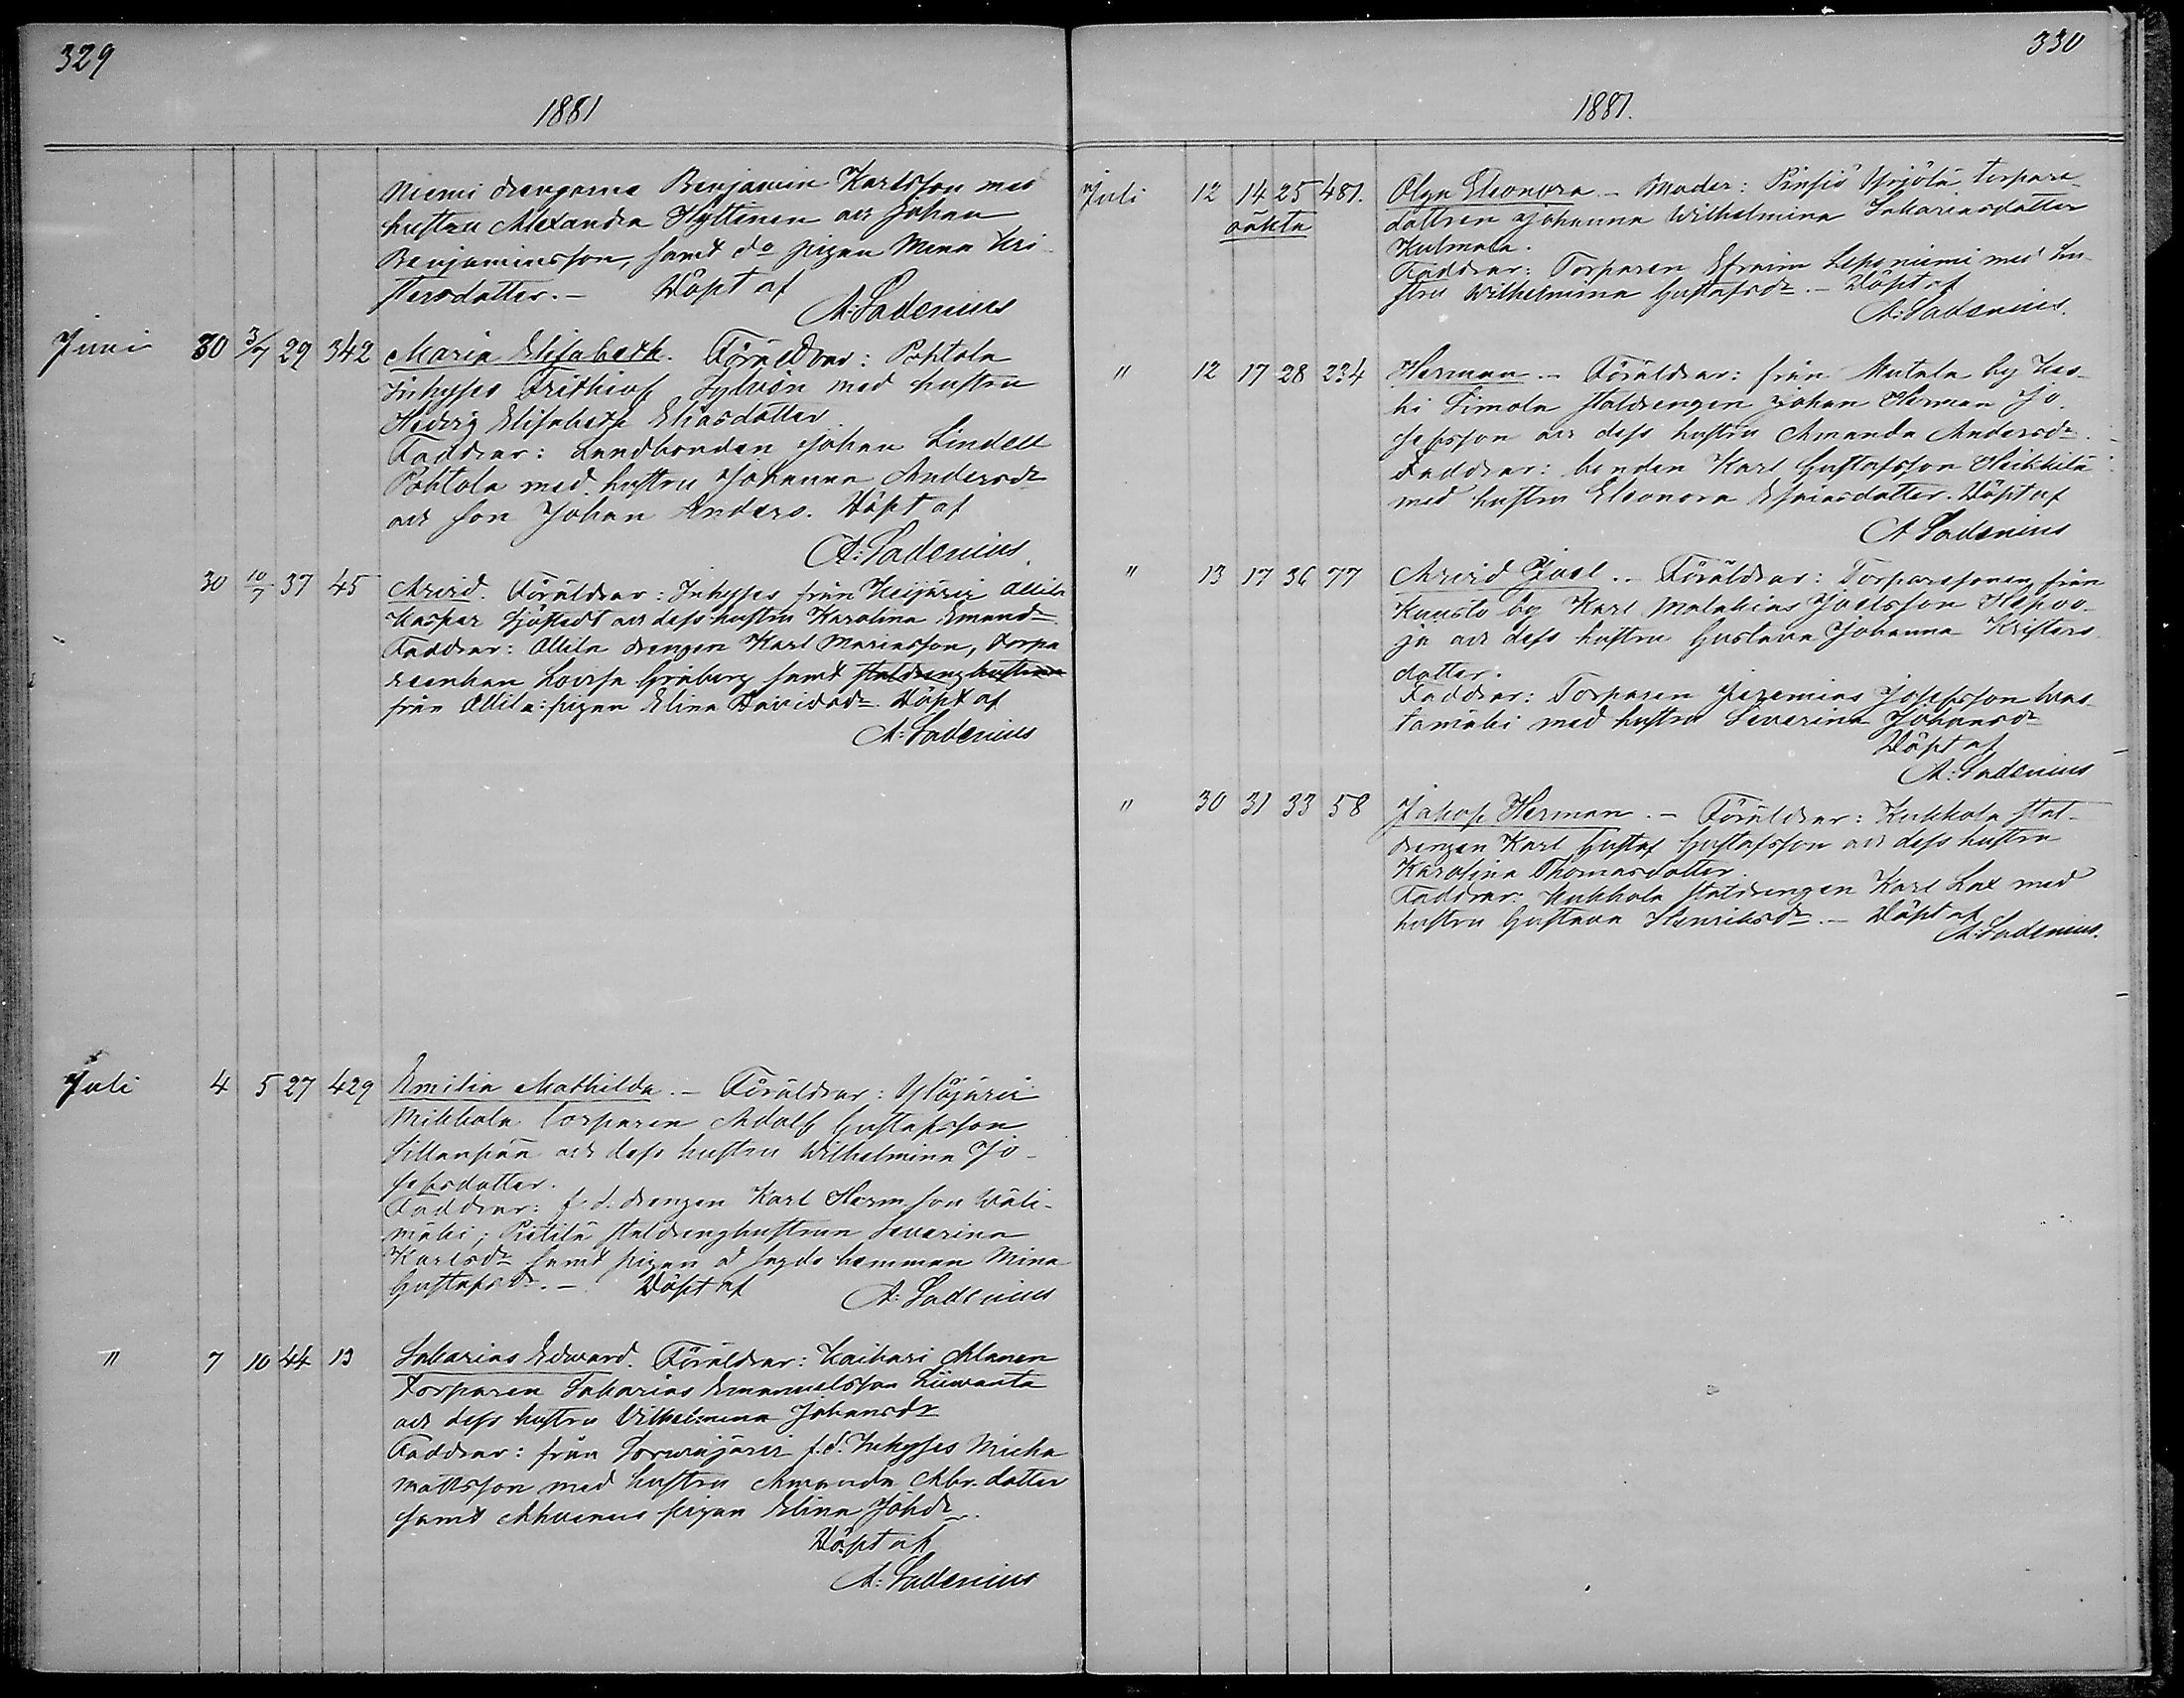 329
1881
Niemi drengarne Benjamin Karlsson med
hustru Alexandra Hyttinen och Johan
Benjaminsson, samt do pigan Minna Kri-
stersdotter. – Döpt af
A: Ladenius
Juni 30 3/7 29 342 Maria Elisabeth. Föräldrar: Pohtola
Inhyses Frithiof Sylvén med hustru
Hedvig Elisabeth Eliasdotter
Faddrar: Landbonden Johan Lindell
Pohtola med hustru Johanna Andersdr
och son Johan Anders. Döpt af
A: Ladenius.
30 10/7 37 45 Arvid. Föräldrar: Inhyses från Heijärvi Ollila
Kaspar Sjöstedt och dess hustru Karolina Emandr
Faddrar: Ollila drengen Karl Mariasson, torpa
reenkan Lovisa Grönberg samt staldrenghustrun
från Ollila: pigan Elina Davidsdr. Döpt af
A: Ladenius
Juli 4 5 27 429 Emilia Mathilda. – Föräldrar: Ylöjärvi
Mikkola torparen Adolf Gustafsson
Sillanpää och dess hustru Wilhelmina Jo-
sefsdotter.
Faddrar: f.d. drengen Karl Hermsson Wäli-
mäki; Pietilä staldrenghustrun Severina
Karlsdr samt pigan å sagde hemman Mina
Gustafsdr. – Döpt af A: Ladenius
" 7 10 44 13 Sakarias Edward. Föräldrar: Kaihari Alanen
Torparen Sakarias Emanuelsson Liuwanta
och dess hustru Vilhelmina Johansdr
Faddrar: från Sorwajärvi f.d. Inhyses Micha
Mattsson med hustru Amanda Abr. dotter
samt Ahvenus pigan Elina Johdr.
Döpt af
A: Ladenius
330
1881.
Juli 12 14 25 481. Olga Eleonora – Moder: Pinsiö Yrjölä torpare-
oäkta dottren Johanna Wilhelmina Sakariasdotter
Kulmala.
Faddrar: Torparen Efraim Leponiemi med hu-
stru Wilhelmina Gustafsdr. – Döpt af
A: Ladenius.
" 12 17 28 234 Herman – Föräldrar: från Mutala by Kas-
ki Simola staldrengen Johan Herman Jo-
sefsson och dess hustru Amanda Andersdr.
Faddrar: bonden Karl Gustafsson Heikkilä
med hustru Eleonora Efraimsdotter. Döpt af
A Ladenius
" 13 17 36 77 Arvid Joel. – Föräldrar: Torparesonen från
Kuusto by Karl Malakias Joelsson Hepoo-
ja och dess hustru Gustava Johanna Kristers
dotter.
Faddrar: Torparen Jeremias Josefsson Was-
tamäki med hustru Severina Johansdr
Döpt af
A: Ladenius
" 30 31 33 58 Jakop Herman. – Föräldrar: Kukkola stal-
drengen Karl Gustaf Gustafsson och dess hustru
Karolina Thomasdotter.
Faddrar: Kukkola staldrengen Karl Lax med
hustru Gustava Henriksdr. – Döpt af
A: Ladenius.